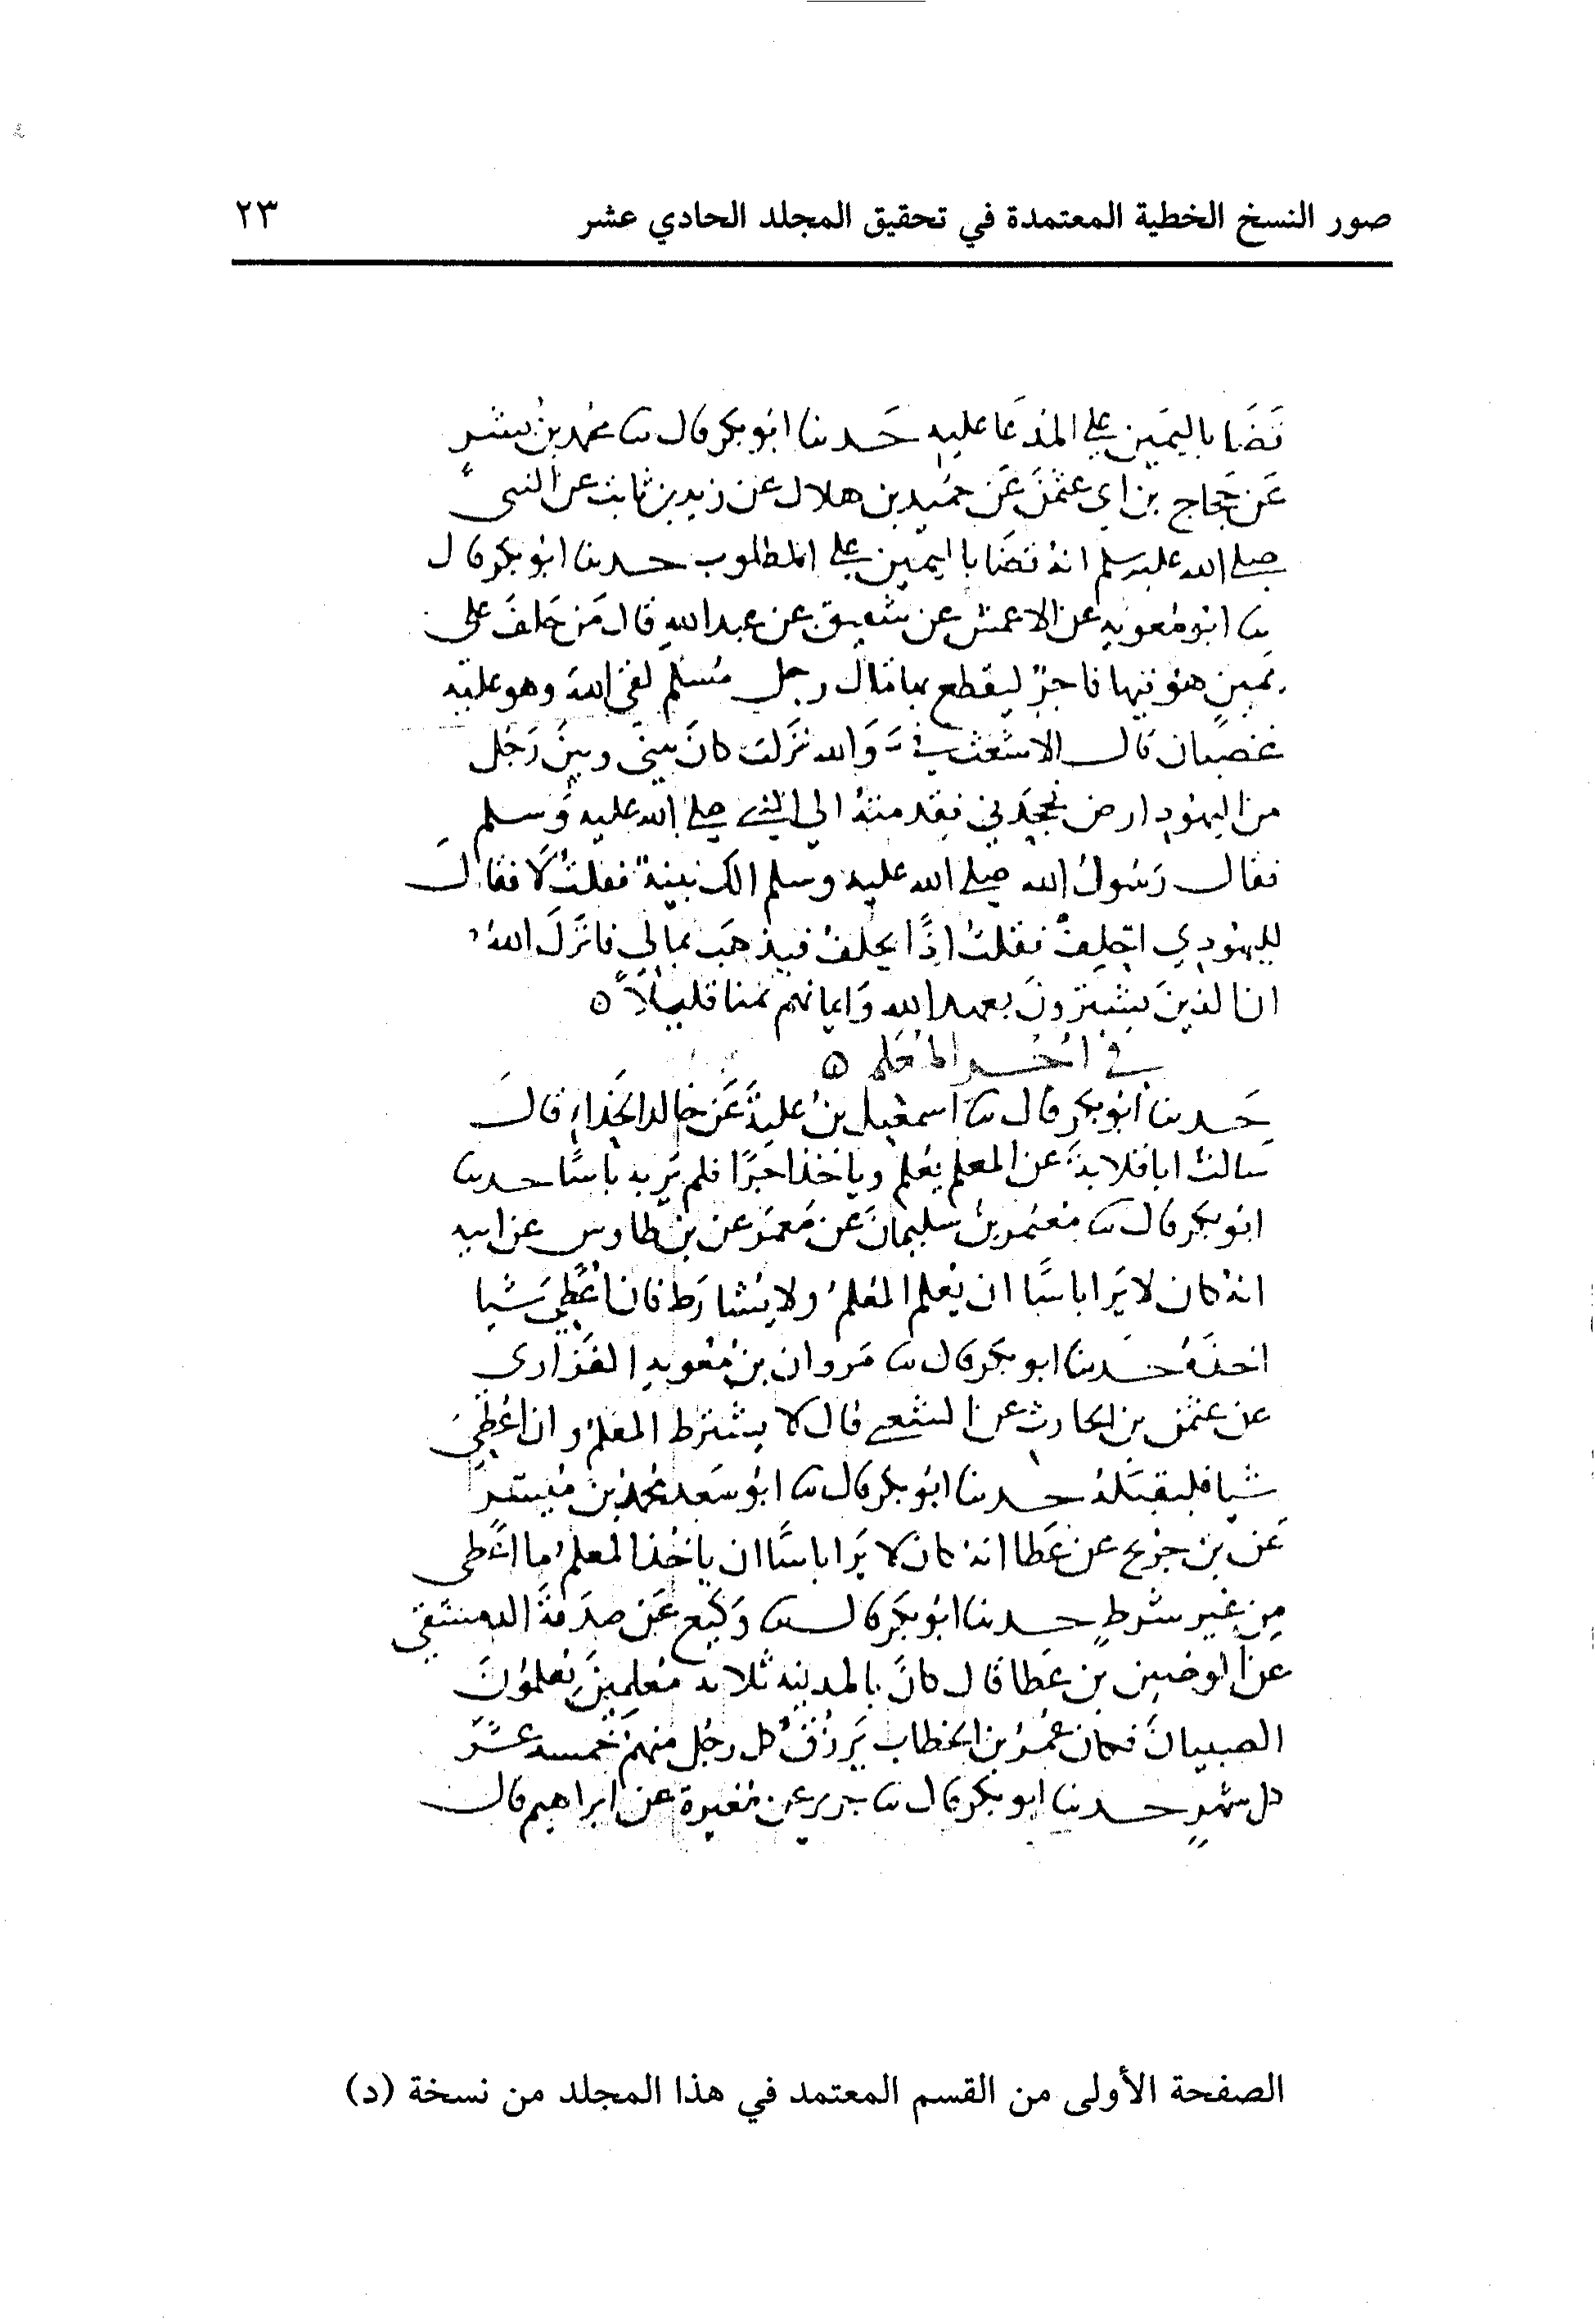 صور النسخ الخطية المعتمدة في تحقيق المجلد الحادي عشر ٢٣
قضا باليمين علي المدعا عليه حدثنا ابو بكر قال ثنا محمد بن بشر
عن حجاج بن ابي عثمن عن حميد بن هلال عن زيد بن ثابت عن النبي
صلي الله عليه سلم انه قضا باليمين علي المطلوب حدثنا ابو بكر قال
ثنا ابو معويه عن الاعمش عن شقيق عن عبد الله قال من حلف على
يمين هو فيها فاجر ليقطع بها مال رجل مسلم لقي الله وهو عليه
غضبان قال الاشعث في والله نزلت كان بيني وبين رجل
من اليهود ارض فجحدني فقدمته الي النبي صلي الله عليه وسلم
فقال رسول الله صلي الله عليه وسلم الك بينة فقلت لا فقال
لليهودي اتحلف فقلت اذًا يحلف فيذهب بمالي فانزل الله
ان الذين يشترون بعهد الله وايمانهم ثمنا قليلاً ه
في اجر المعلم ه
حدثنا ابو بكر قال ثنا اسمعيل بن علية عن خالد الحذاء قال
سالت ابا قلابة عن المعلم يعلم وياخذ اجرًا فلم ير به باسًا حدثنا
ابو بكر قال ثنا معتمر بن سليمان عن معمر عن بن طاوس عن ابيه
انه كان لا يرا باسًا ان يعلم المعلم ولا يشارط فان اعطي شيا
اخذه حدثنا ابو بكر قال ثنا مروان بن معويه الفزاري
عن عثمن بن الحارث عن الشعبي قال لا يشترط المعلم وان اعطي
شيا فليقبله حدثنا ابو بكر قال ثنا ابو سعد محمد بن ميسر
عن بن جريج عن عطا انه كان لا يرا باسًا ان ياخذ المعلم ما اعطى
من غير شرط حدثنا ابو بكر قال ثنا وكيع عن صدقة الدمشقي
عن الوضين بن عطا قال كان بالمدينه ثلاثه معلمين يعلمون
الصبيان فكان عمر بن الخطاب يرزق كل رجل منهم خمسه عشر
كل شهر حدثنا ابو بكر قال ثنا جرير عن مغيرة عن ابراهيم قال
الصفحة الأولى من القسم المعتمد في هذا المجلد من نسخة (د)